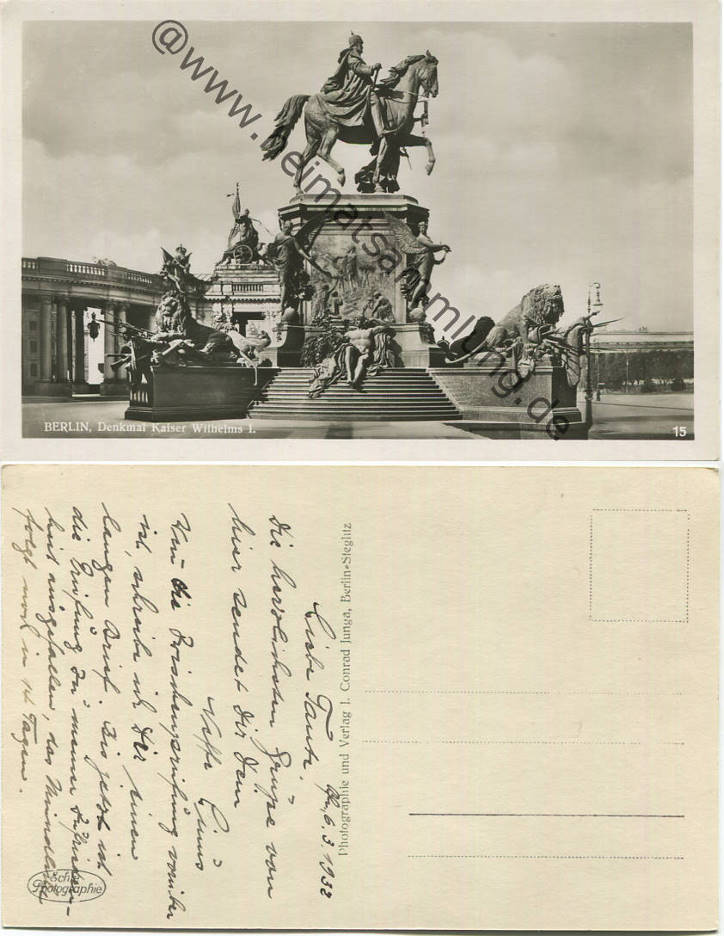 @www.heimatsammlung.de
BERLIN, Denkmal Kaiser Wilhelms I.
15
Bln, 6.3.1932
Liebe Tante,
die herzlichsten Grüße von
hier sendet Dir Dein
Neffe
Wenn die Zwischenprüfung vorüber
ist, schreibe ich Dir einen
langen Brief. Bis jetzt ist
die Prüfung zu meiner Zufrieden-
heit ausgefallen, das Mündliche
folgt noch in 14 Tagen.
Photographie und Verlag J. Conrad Junga, Berlin-Steglitz
Echte
Photographie